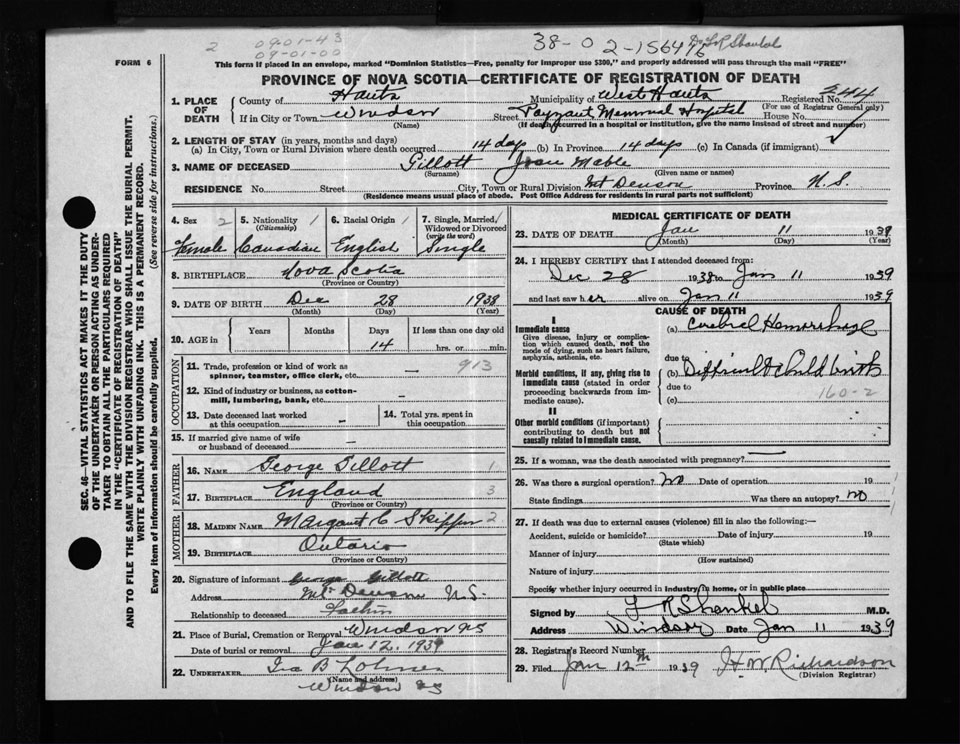 2 09-01-43 38-0 2-156476 Dr L R Shankel
09-01-00
FORM 6 This form if placed in an envelope, marked "Dominion Statistics—Free, penalty for improper use $300," and properly addressed will pass through the mail "FREE"
PROVINCE OF NOVA SCOTIA—CERTIFICATE OF REGISTRATION OF DEATH
1. PLACE OF DEATH County of Hants Municipality of West Hants Registered No. 244
(For use of Registrar General only)
If in City or Town Windsor Street Payzant Memorial Hospital House No.
(Name) (If death occurred in a hospital or institution, give the name instead of street and number)
2. LENGTH OF STAY (in years, months and days)
(a) In City, Town or Rural Division where death occurred 14 days (b) In Province 14 days (c) In Canada (if immigrant)
3. NAME OF DECEASED Gillott Joan Mable
(Surname) (Given name or names)
RESIDENCE No. Street City, Town or Rural Division Mt Denson Province N.S.
(Residence means usual place of abode. Post Office Address for residents in rural parts not sufficient)
4. Sex 2 Female
5. Nationality (Citizenship) 1 Canadian
6. Racial Origin 1 English
7. Single, Married, Widowed or Divorced (write the word) Single
8. BIRTHPLACE Nova Scotia
(Province or Country)
9. DATE OF BIRTH Dec 28 1938
(Month) (Day) (Year)
10. AGE in Years Months Days If less than one day old
14 hrs. or min.
OCCUPATION
11. Trade, profession or kind of work as spinner, teamster, office clerk, etc. — 913
12. Kind of industry or business, as cotton-mill, lumbering, bank, etc. —
13. Date deceased last worked at this occupation —
14. Total yrs. spent in this occupation
15. If married give name of wife or husband of deceased —
FATHER
16. NAME George Gillott 1
17. BIRTHPLACE England 3
MOTHER
18. MAIDEN NAME Margaret C Skipper 2
19. BIRTHPLACE Ontario
(Province or Country)
20. Signature of informant George Gillott
Address Mt Denson N.S.
Relationship to deceased Father
21. Place of Burial, Cremation or Removal Windsor NS
Date of burial or removal Jan 12, 1939
22. UNDERTAKER Ira B Lohnes
(Name and address)
Windsor NS
MEDICAL CERTIFICATE OF DEATH
23. DATE OF DEATH Jan 11 1939
(Month) (Day) (Year)
24. I HEREBY CERTIFY that I attended deceased from:
Dec 28 1938 to Jan 11 1939
and last saw her alive on Jan 11 1939
CAUSE OF DEATH
I
Immediate cause
Give disease, injury or complication which caused death, not the mode of dying, such as heart failure, asphyxia, asthenia, etc.
(a) Cerebral Hemorrhage
due to
Morbid conditions, if any, giving rise to immediate cause (stated in order proceeding backwards from immediate cause).
(b) Difficult childbirth
due to
(c) 160-2
II
Other morbid conditions (if important) contributing to death but not causally related to immediate cause.
25. If a woman, was the death associated with pregnancy? —
26. Was there a surgical operation? no Date of operation 19
State findings Was there an autopsy? no
27. If death was due to external causes (violence) fill in also the following:—
Accident, suicide or homicide? Date of injury 19
(State which)
Manner of injury
(How sustained)
Nature of injury
Specify whether injury occurred in industry, in home, or in public place
Signed by L R Shankel M.D.
Address Windsor Date Jan 11 1939
28. Registrar's Record Number
29. Filed Jan 12th 1939 H W Richardson
(Division Registrar)
SEC. 46—VITAL STATISTICS ACT MAKES IT THE DUTY
OF THE UNDERTAKER OR PERSON ACTING AS UNDER-
TAKER TO OBTAIN ALL THE PARTICULARS REQUIRED
IN THE "CERTIFICATE OF REGISTRATION OF DEATH"
AND TO FILE THE SAME WITH THE DIVISION REGISTRAR WHO SHALL ISSUE THE BURIAL PERMIT.
WRITE PLAINLY WITH UNFADING INK. THIS IS A PERMANENT RECORD.
Every item of information should be carefully supplied. (See reverse side for instructions.)